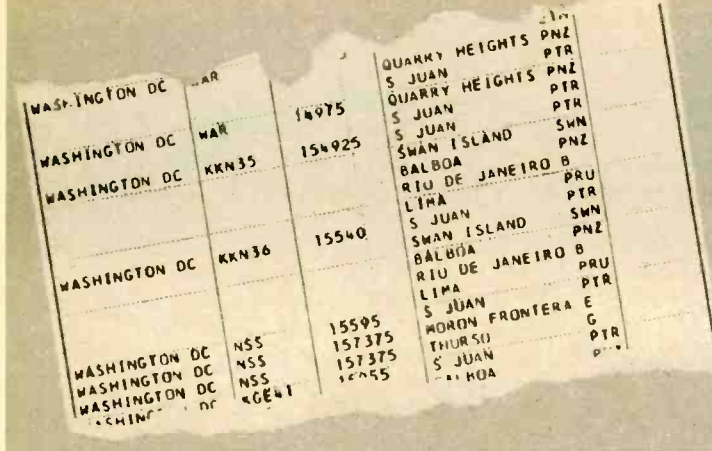 WASHINGTON DC WAR QUARRY HEIGHTS PNZ
S JUAN PTR
WASHINGTON DC WAR 14975 QUARRY HEIGHTS PNZ
S JUAN PTR
WASHINGTON DC KKN35 154925 S JUAN PTR
SWAN ISLAND SWN
BALBOA PNZ
RIO DE JANEIRO B
LIMA PRU
WASHINGTON DC KKN36 15540 S JUAN PTR
SWAN ISLAND SWN
BALBOA PNZ
RIO DE JANEIRO B
LIMA PRU
WASHINGTON DC NSS 15595 S JUAN PTR
WASHINGTON DC NSS 157375 MORON FRONTERA E
WASHINGTON DC NSS 157375 THURSO G
S JUAN PTR